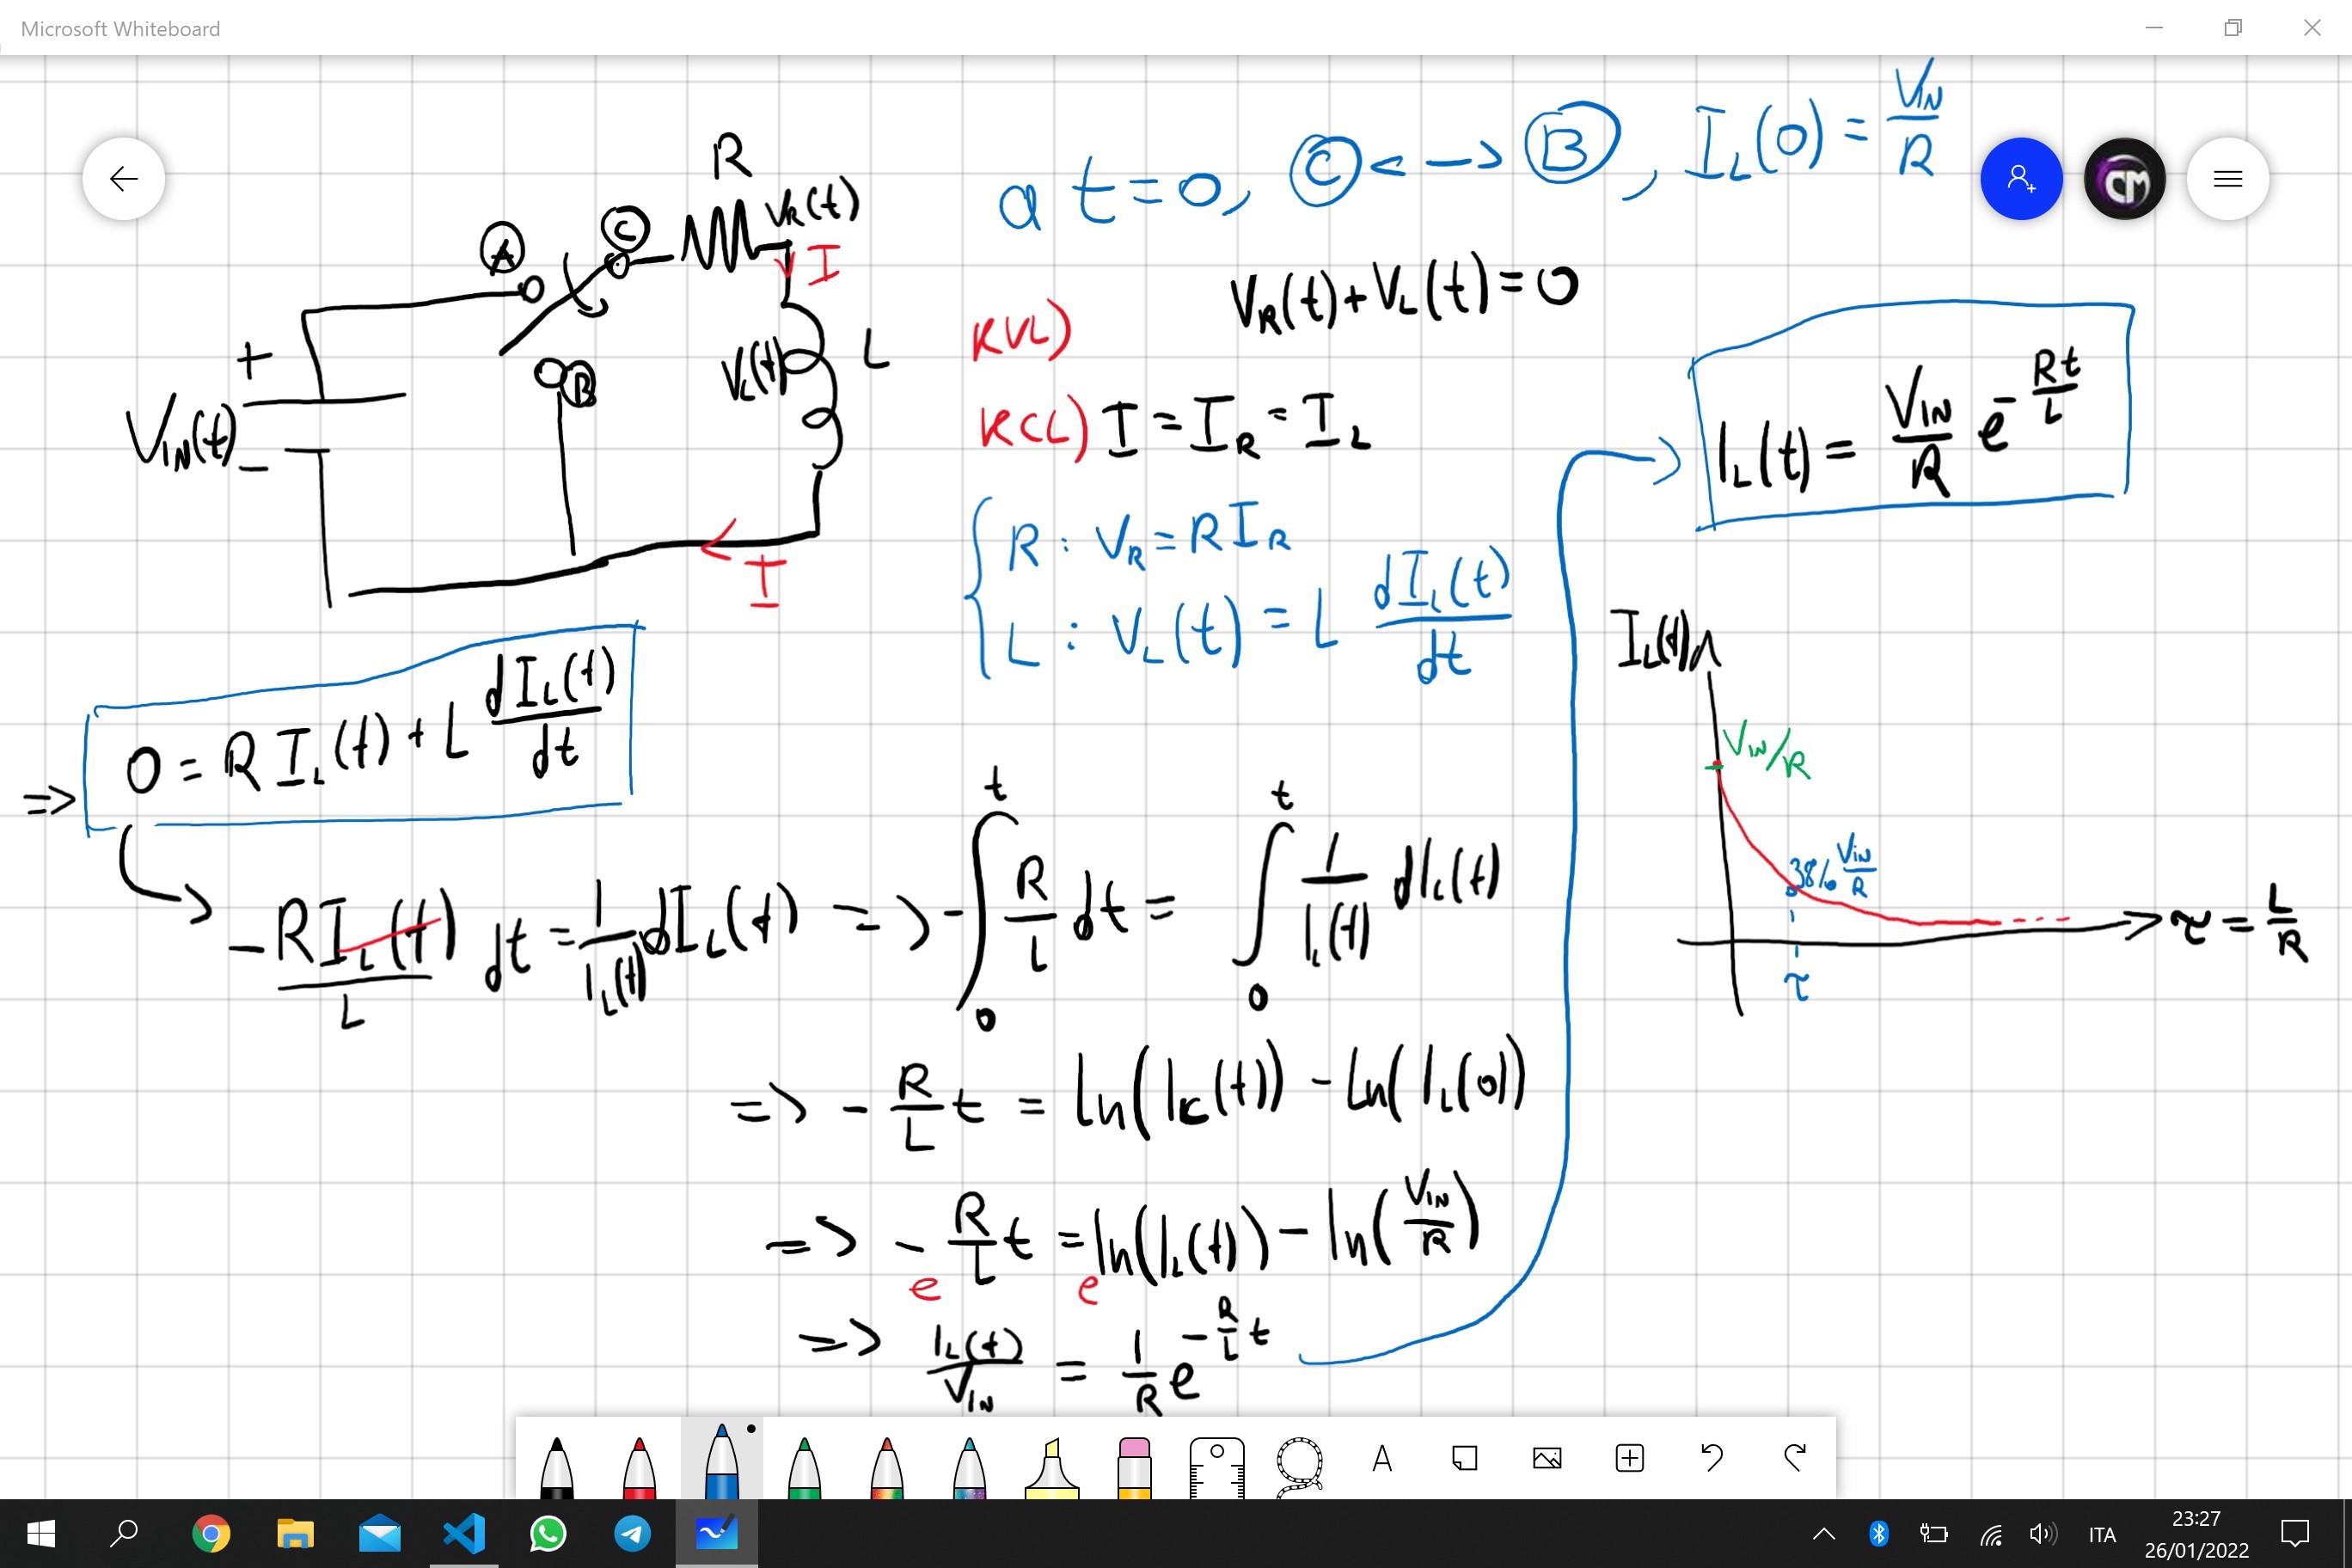 Microsoft Whiteboard
a t=0, C <-> B, I_L(0) = V_IN/R
R
V_R(t)
I
A
C
B
+
V_IN(t)
-
V_L(t)
L
I
KVL) V_R(t)+V_L(t)=0
KCL) I = I_R = I_L
R : V_R = R I_R
L : V_L(t) = L dI_L(t)/dt
I_L(t) = V_IN/R e^(-Rt/L)
=> 0 = R I_L(t) + L dI_L(t)/dt
-R I_L(t)/L dt = 1/I_L(t) dI_L(t) => -∫_0^t R/L dt = ∫_0^t 1/I_L(t) dI_L(t)
=> - R/L t = ln(I_L(t)) - ln(I_L(0))
=> - R/L t = ln(I_L(t)) - ln(V_IN/R)
e e
=> I_L(t)/V_IN = 1/R e^(-R/L t)
I_L(t)
V_IN/R
38% V_IN/R
τ
τ = L/R
CM
A
ITA
23:27
26/01/2022